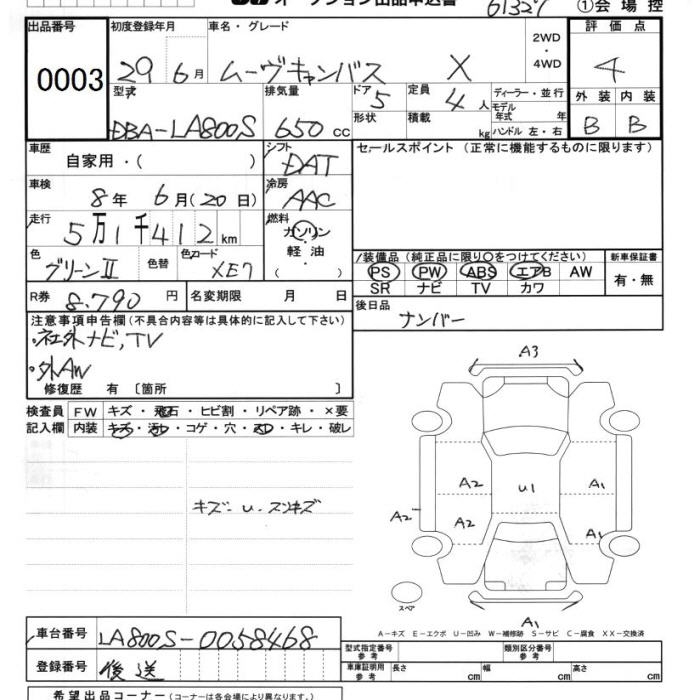 オークション出品申込書
61327
①会場控
出品番号 初度登録年月 車名・グレード 2WD・4WD 評価点
0003 29年6月 ムーヴキャンバス X 4
型式 排気量 ドア 5 定員 4人 ディーラー・並行 外装 内装
DBA-LA800S 650cc 形状 積載 kg モデル年式 年 ハンドル 左・右 B B
車歴 自家用・( ) シフト DAT セールスポイント (正常に機能するものに限ります)
車検 8年 6月(20日) 冷房 AAC
走行 5万1千412km 燃料 ガソリン・軽油・( )
色 グリーンII 色替 色コード XE7
装備品 (純正品に限り○をつけてください) 新車保証書
PS PW ABS エアB AW 有・無
SR ナビ TV カワ
R券 8.790円 名変期限 月 日 後日品
ナンバー
注意事項申告欄(不具合内容等は具体的に記入して下さい)
・社外ナビ,TV
・外AW
修復歴 有 〔箇所 〕
検査員 FW キズ・飛石・ヒビ割・リペア跡・×要
記入欄 内装 キズ・汚れ・コゲ・穴・スレ・キレ・破レ
キズ・U・スレキズ
A3
A2 U1 A1
A2 A2 A1
スペア
A1
A-キズ E-エクボ U-凹み W-補修跡 S-サビ C-腐食 XX-交換済
車台番号 LA800S-0058468 型式指定番号 類別区分番号
登録番号 後送 車庫証明用参考 長さ cm 幅 cm 高さ cm
参考
希望出品コーナー(コーナーは各会場により異なります。)